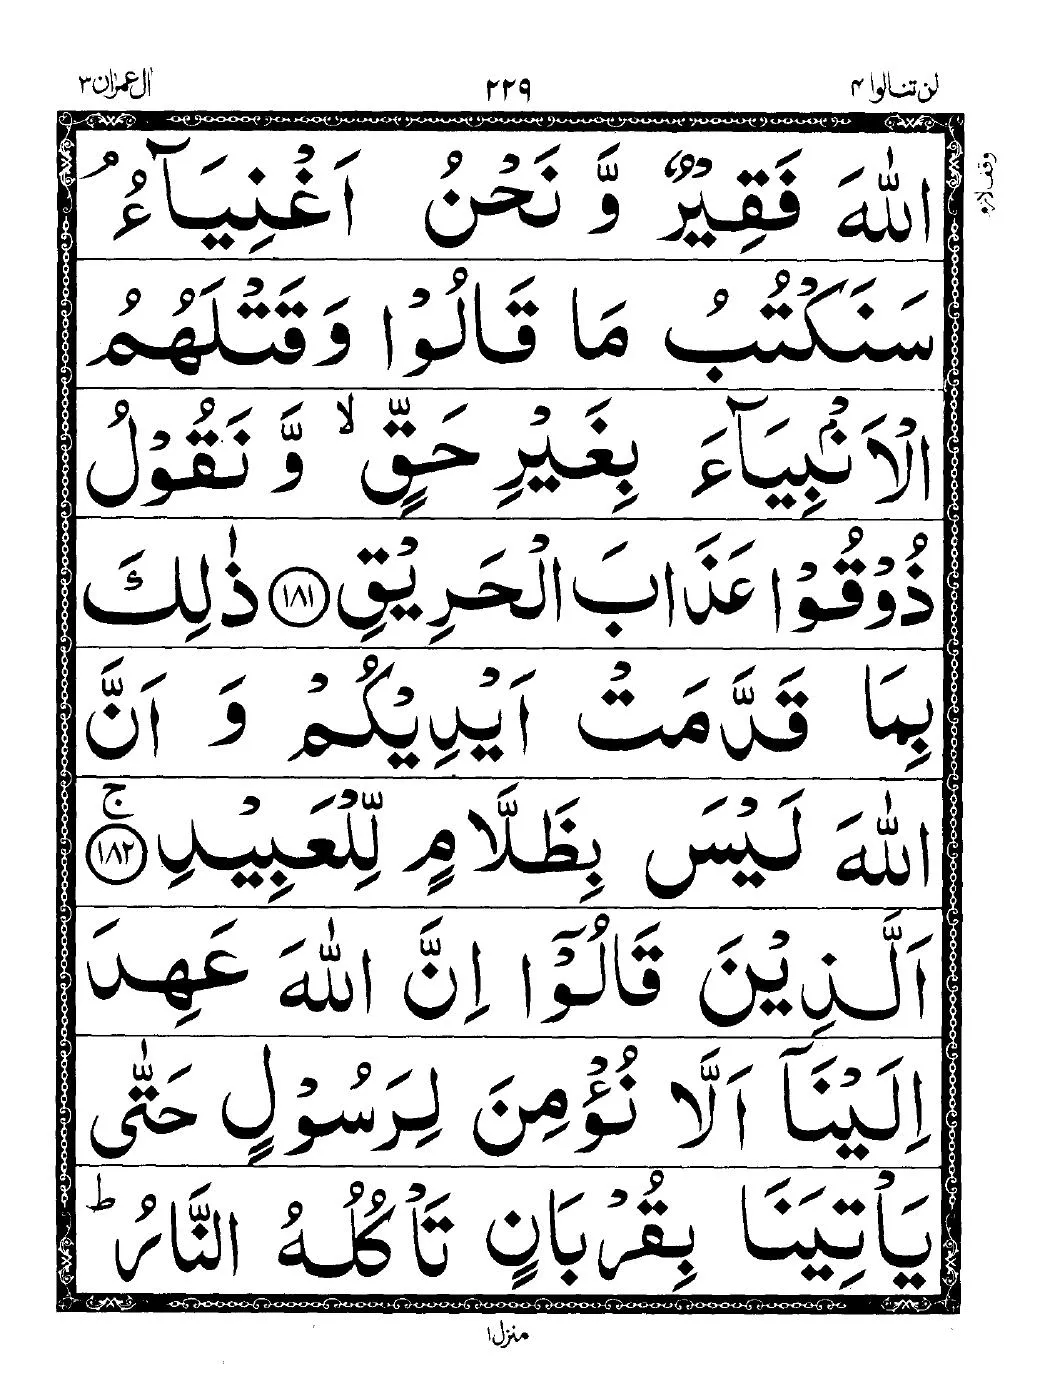 لن تنالوا ۴
۲۲۹
اٰل عمرٰن ۳
وقف لازم
اللّٰهَ فَقِيْرٌ وَّ نَحْنُ اَغْنِيَآءُ ۘ
سَنَكْتُبُ مَا قَالُوْا وَ قَتْلَهُمُ
الْاَنْۢبِيَآءَ بِغَيْرِ حَقٍّ ۙ وَّ نَقُوْلُ
ذُوْقُوْا عَذَابَ الْحَرِيْقِ ﴿۱۸۱﴾ ذٰلِكَ
بِمَا قَدَّمَتْ اَيْدِيْكُمْ وَ اَنَّ
اللّٰهَ لَيْسَ بِظَلَّامٍ لِّلْعَبِيْدِ ﴿۱۸۲﴾ ۚ
اَلَّذِيْنَ قَالُوْۤا اِنَّ اللّٰهَ عَهِدَ
اِلَيْنَاۤ اَلَّا نُؤْمِنَ لِرَسُوْلٍ حَتّٰى
يَاْتِيَنَا بِقُرْبَانٍ تَاْكُلُهُ النَّارُ ؕ
منزل ۱